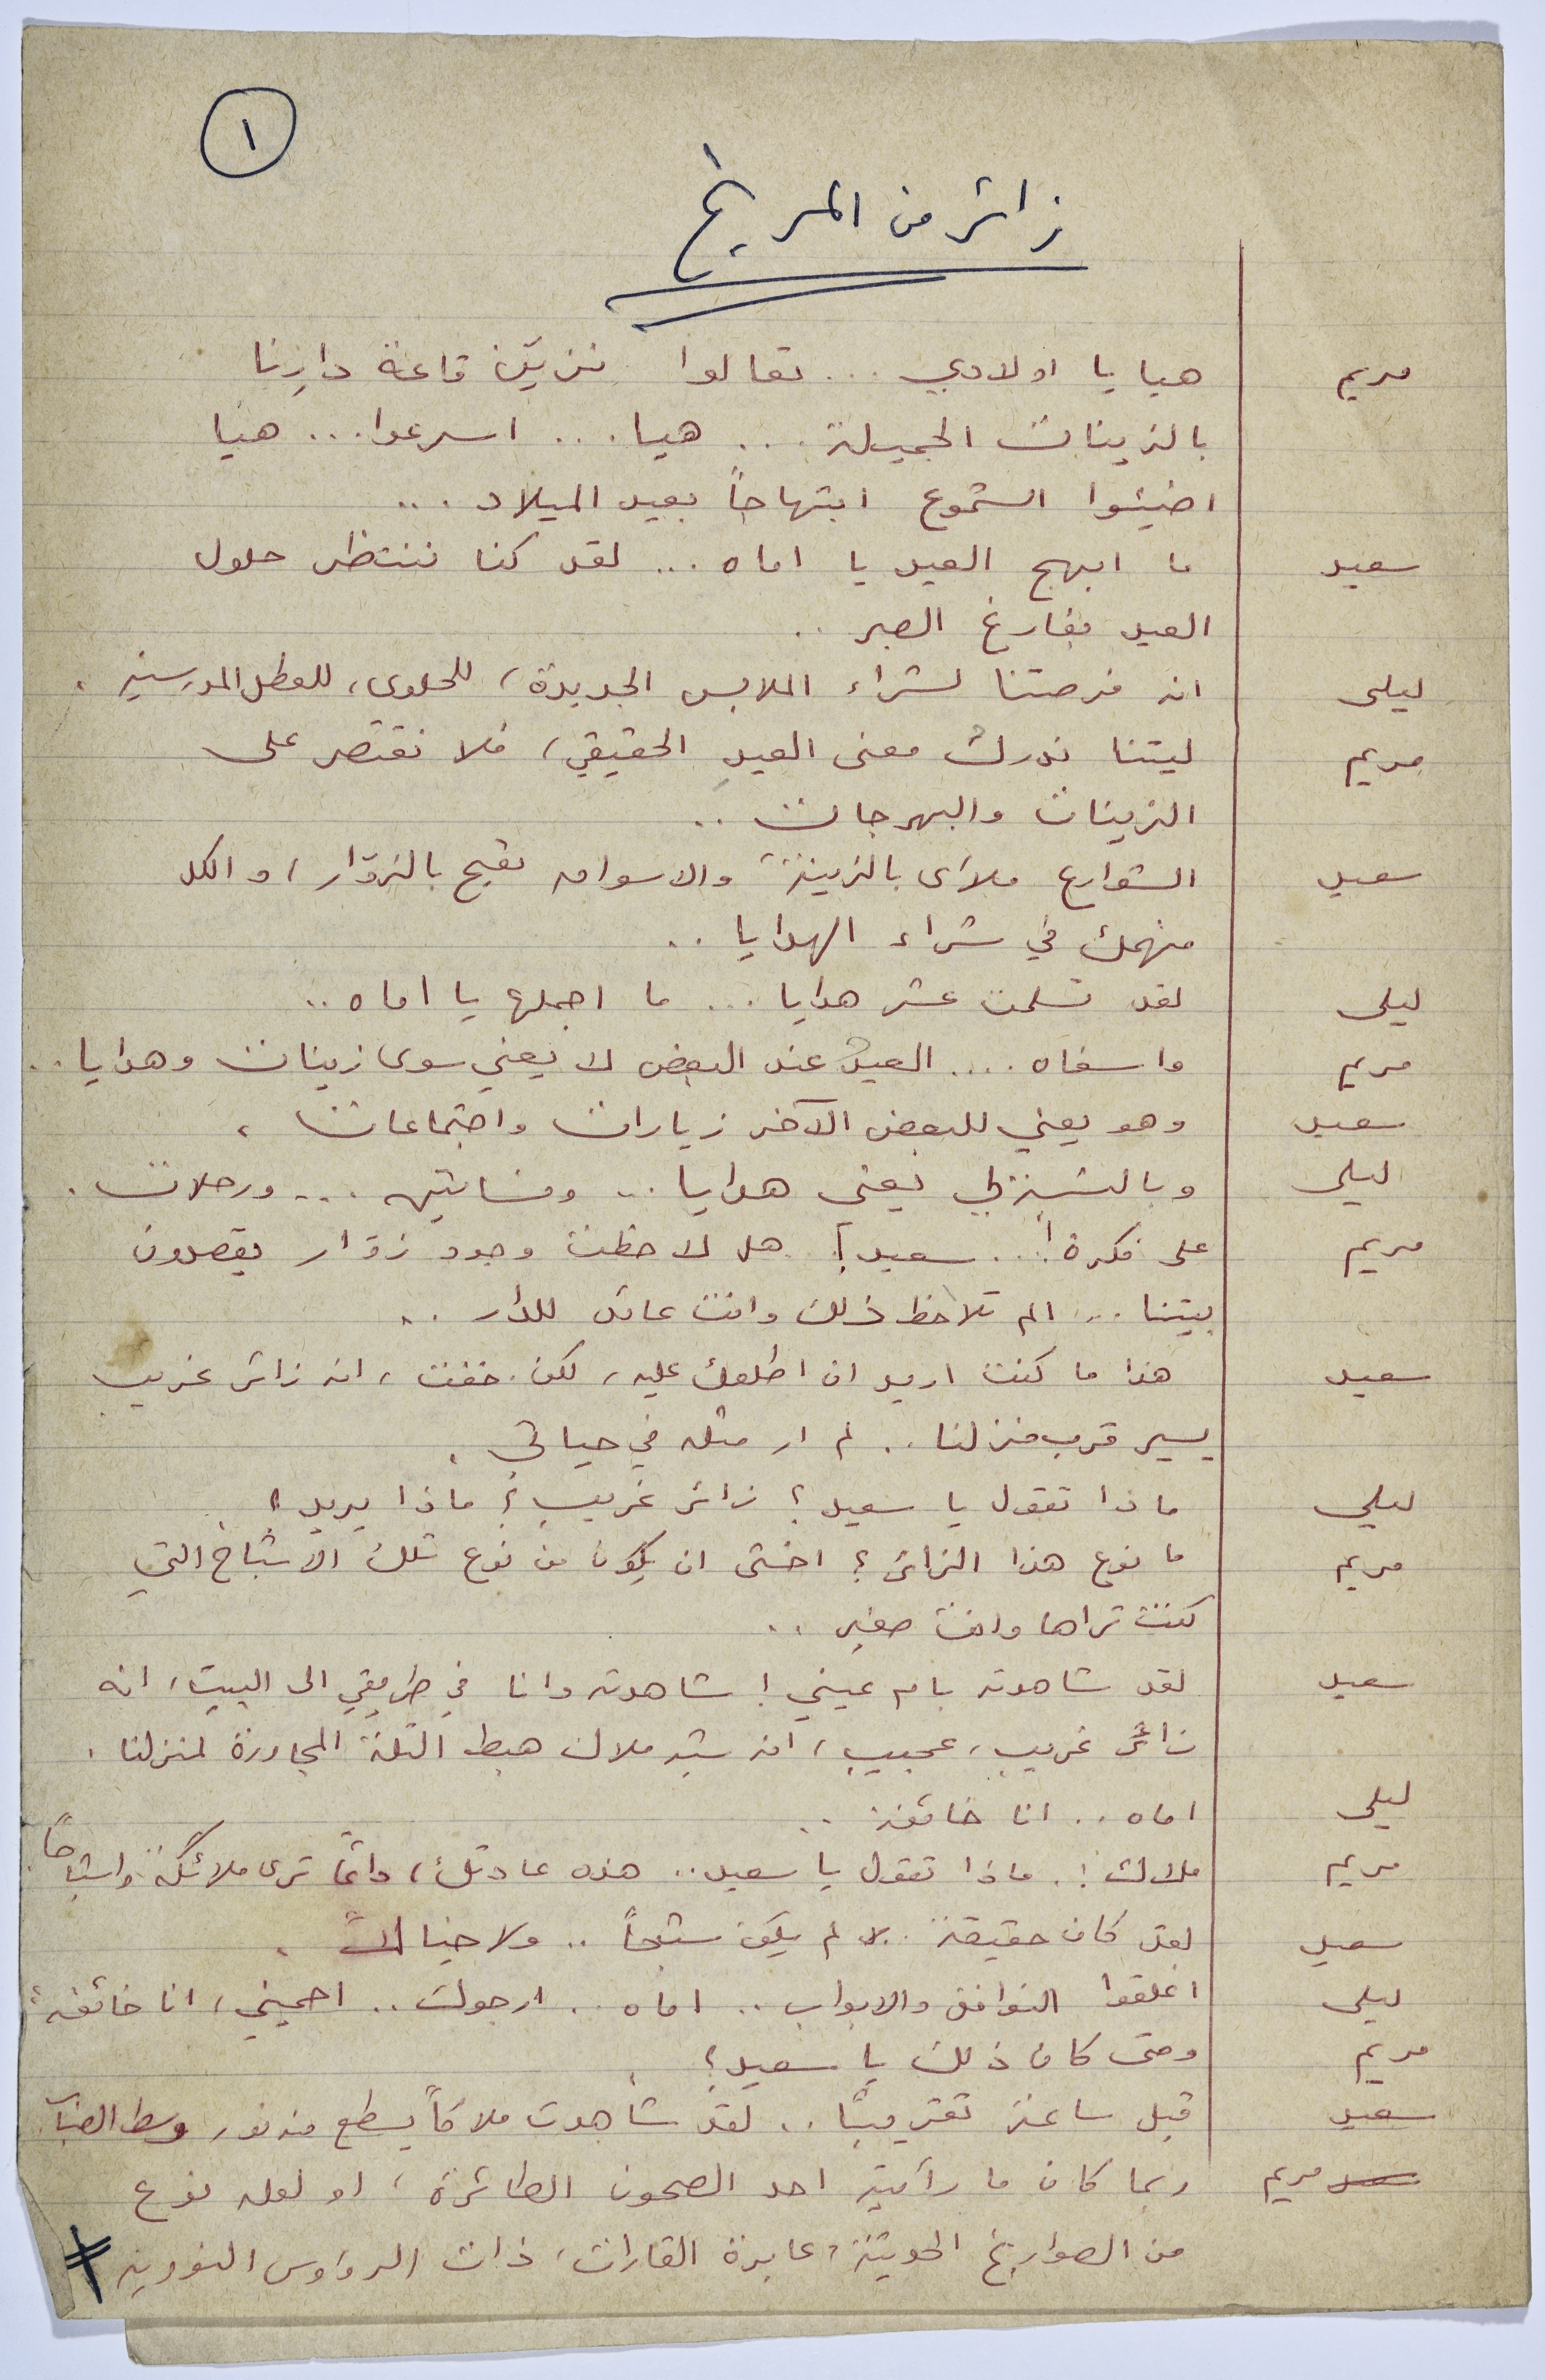 ١
زائر من المريخ
مريم هيا يا اولادي ... تعالوا نزيّن قاعة دارنا
بالزينات الجميلة ... هيا ... اسرعوا ... هيا
اضيئوا الشموع ابتهاجاً بعيد الميلاد ...
سعيد ما ابهج العيد يا اماه ... لقد كنا ننتظر حلول
العيد بفارغ الصبر ..
ليلى انه فرصتنا لشراء الملابس الجديدة، للحلوى، للعطل المدرسية.
مريم ليتنا ندرك معنى العيد الحقيقي، فلا نقتصر على
الزينات والبهرجات ..
سعيد الشوارع ملآى بالزينة والاسواق تعج بالزوّار، والكل
منهمك في شراء الهدايا ..
ليلى لقد تسلمت عشر هدايا ... ما اجملها يا اماه ..
مريم وا سفاه .... العيد عند البعض لا يعني سوى زينات وهدايا ..
سعيد وهو يعني للبعض الآخر زيارات واجتماعات.
ليلى وبالنسبة لي يعني هدايا .. وفساتين ... ورحلات.
مريم على فكرة! .. سعيد! هل لاحظت وجود زوّار يقصدون
بيتنا .. الم تلاحظ ذلك وانت عائد للدار ..
سعيد هذا ما كنت اريد ان اطلعك عليه، لكن خفت، انه زائر غريب
يسير قرب منزلنا .. لم ار مثله في حياتي.
ليلى ماذا تقول يا سعيد؟ زائر غريب؟ ماذا يريد؟
مريم ما نوع هذا الزائر؟ اخشى ان يكون من نوع تلك الاشباح التي
كنت تراها وانت صغير ..
سعيد لقد شاهدته بام عيني! شاهدته وانا في طريقي الى البيت، انه
زائر غريب، عجيب، انه شبه ملاك هبط التلة المجاورة لمنزلنا.
ليلى اماه .. انا خائفة ..
مريم ملاك!. ماذا تقول يا سعيد .. هذه عادتك، دائماً ترى ملائكة واشباحاً.
سعيد لقد كان حقيقة. لا لم يكن شبحاً .. ولا خيالاً.
ليلى اغلقوا النوافذ والابواب .. اماه .. ارجوك .. احميني، انا خائفة.
مريم ومتى كان ذلك يا سعيد؟
سعيد قبل ساعة تقريباً .. لقد شاهدت ملاكاً يسطع منه نور وسط الضباب
مريم ربما كان ما رأيته احد الصحون الطائرة، او لعله نوع
من الصواريخ الحديثة، عابرة القارات، ذات الرؤوس النووية